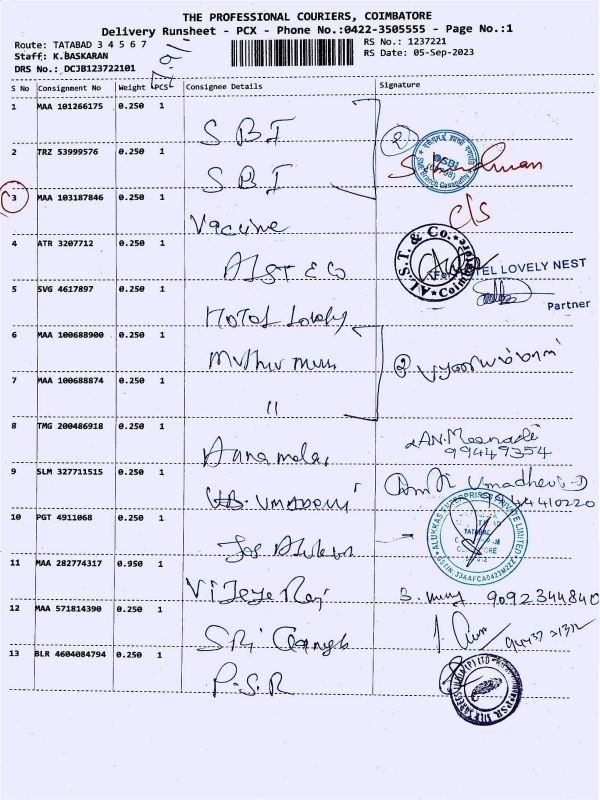 THE PROFESSIONAL COURIERS, COIMBATORE
Delivery Runsheet - PCX - Phone No.:0422-3505555 - Page No.:1
Route: TATABAD 3 4 5 6 7
RS No.: 1237221
Staff: K.BASKARAN
RS Date: 05-Sep-2023
DRS No.: DCJB123722101
S No Consignment No Weight PCS Consignee Details Signature
1 MAA 101266175 0.250 1
SBI
2 TRZ 53999576 0.250 1
SBI
3 MAA 103187846 0.250 1
c/s
Vaccine
4 ATR 3207712 0.250 1
A.S.T. & Co.
AIST & Co
HOTEL LOVELY NEST
5 SVG 4617897 0.250 1
Partner
Hotel Lovely
6 MAA 100688900 0.250 1
2
7 MAA 100688874 0.250 1
"
8 TMG 200486918 0.250 1
AN.Meenachi
99449354
Annamalai
9 SLM 327711515 0.250 1
Umadhevi
10 PGT 4911068 0.250 1
ALUKKAS ENTERPRISES PRIVATE LIMITED
Jos Alukkas
11 MAA 282774317 0.950 1
Vijeye Raj
9092344840
12 MAA 571814390 0.250 1
Sri Ganesh
13 BLR 4604084794 0.250 1
P.S.R